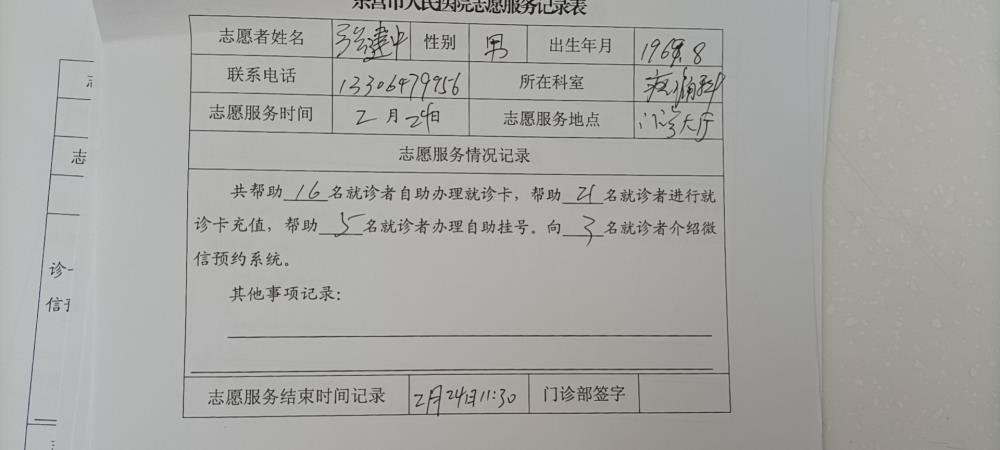 东营市人民医院志愿服务记录表
志愿者姓名 张建中 性别 男 出生年月 1969.8
联系电话 13306479956 所在科室 疼痛科
志愿服务时间 2月24日 志愿服务地点 门诊大厅
志愿服务情况记录
共帮助16名就诊者自助办理就诊卡，帮助21名就诊者进行就
诊卡充值，帮助5名就诊者办理自助挂号。向3名就诊者介绍微
信预约系统。
其他事项记录：
志愿服务结束时间记录 2月24日11:30 门诊部签字
志
诊
信